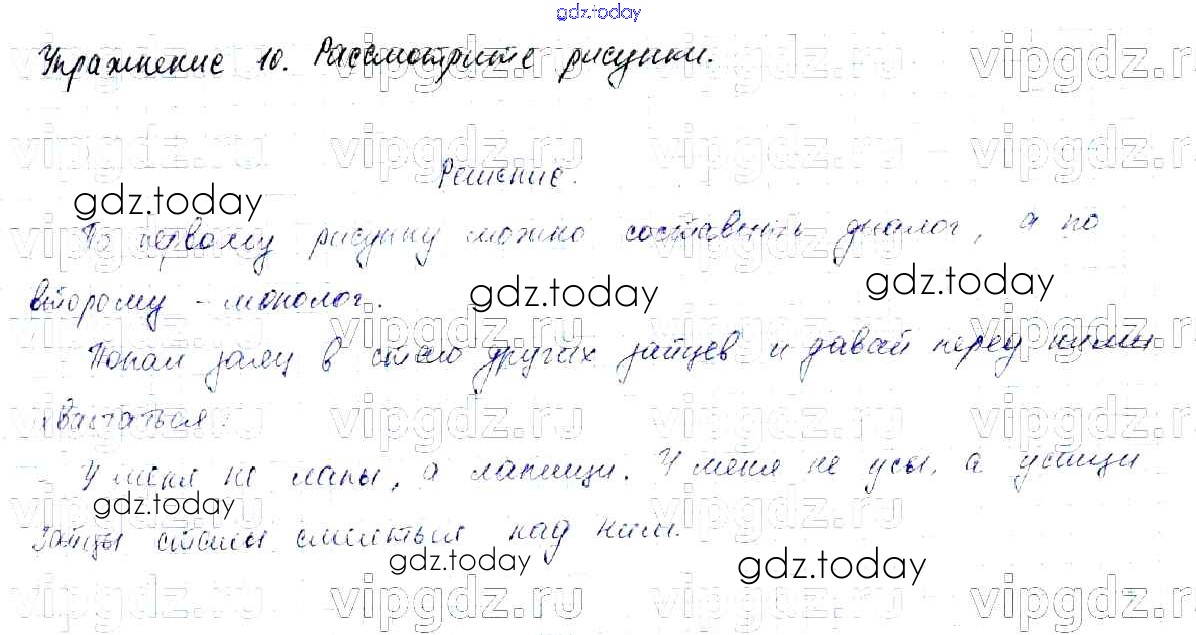 gdz.today
Упражнение 10. Рассмотрите рисунки.
Решение.
gdz.today
По первому рисунку можно составить диалог, а по
второму - монолог.
gdz.today
gdz.today
Попал заяц в стаю других зайцев и давай перед ними
хвастаться:
- У меня не лапы, а лапищи. У меня не усы, а усищи
gdz.today
Зайцы стали смеяться над ним.
gdz.today
gdz.today
vipgdz.ru